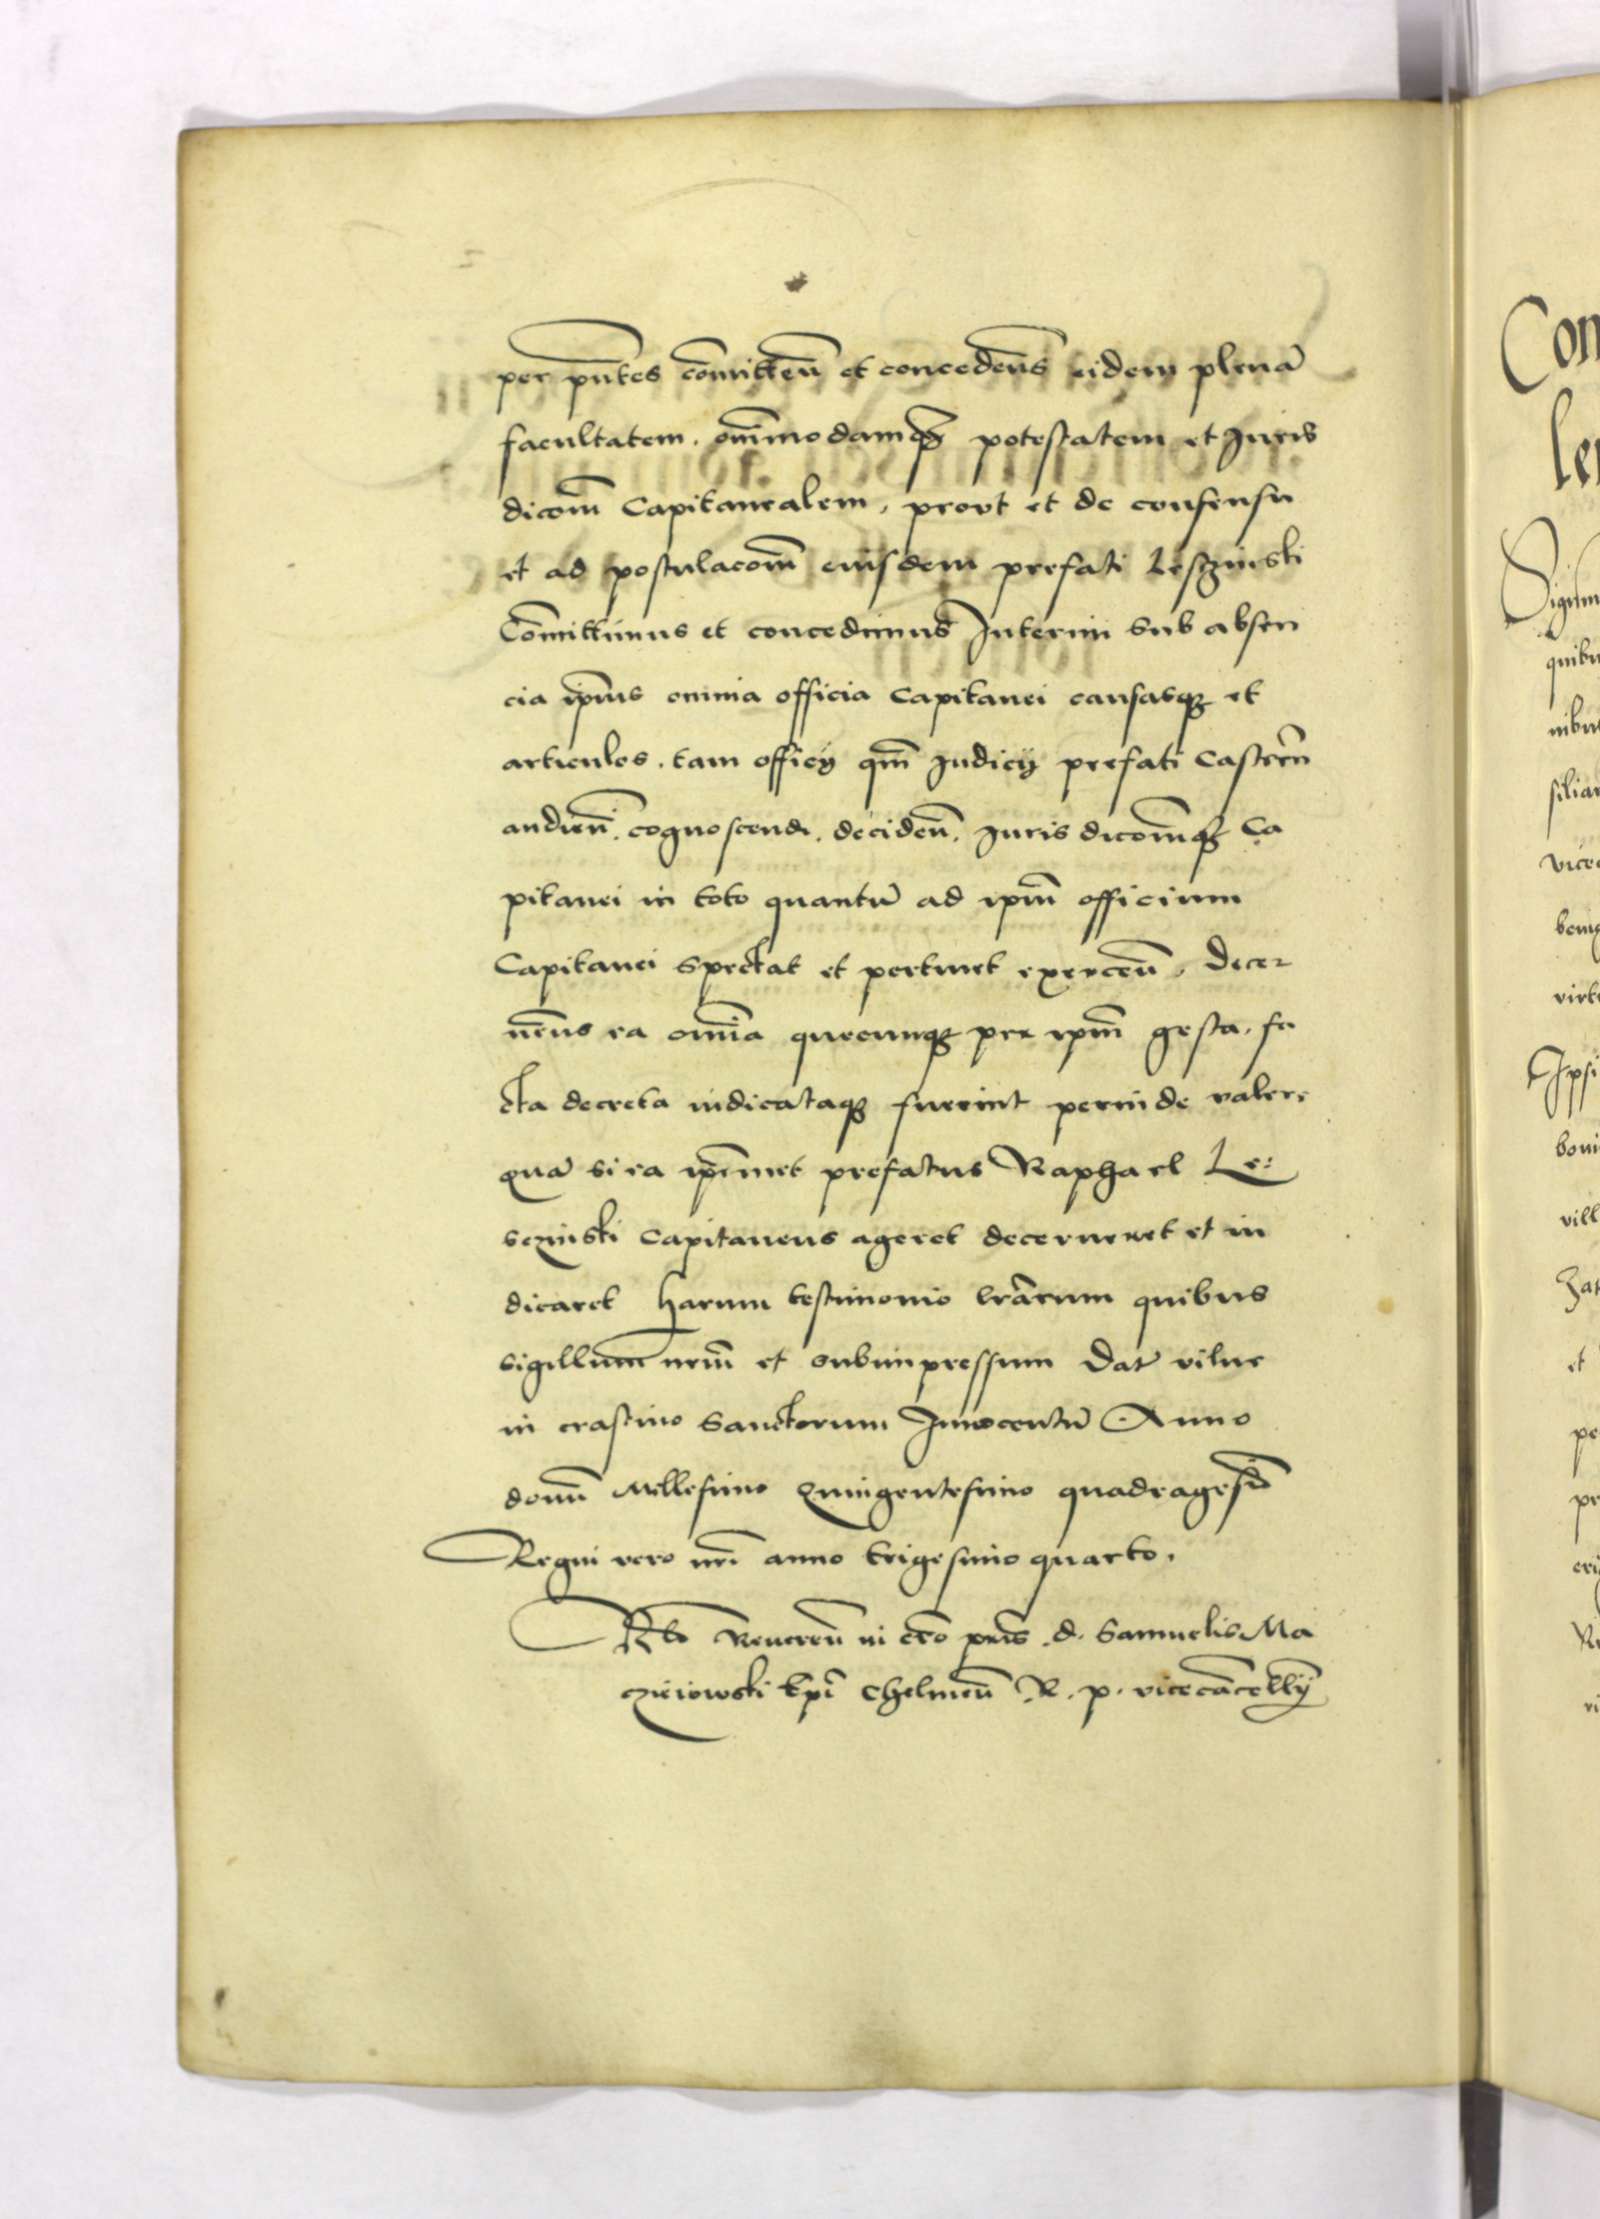 per pn̄tes com̄itten̄ et conceden̄s eidem plenā
facultatem. om̄imodamq3 potestatem et Juris
dicom̄ Capitanealem, prout et de consensu
et ad postulacom̄ eiusdem prefati Lesczinski
Com̄ittimus et concedimus Interim sub absen
cia ip̄ius omnia officia Capitanei causasq3 et
articulos. tam officij qm̄ Judicij prefati Castren̄
audien̄. cognoscendi. deciden̄. Juris dicom̄q3 Ca
pitanei in toto quantū ad ip̄m officium
Capitanei spectat et pertinet exercen̄, decer
nen̄s ea om̄ia quecunq3 per ip̄m gesta. fa
cta decreta iudicataq3 fuerint perinde valere
quā si ea ip̄emet prefatus Raphael Le:
sczinski Capitaneus ageret decerneret et iu
dicaret harum testimonio lrārum quibus
sigillum nrm̄ et subimpressum Datū vilne
in crastino Sanctorum Innocentū Anno
domī Millesimo Quingentesimo quadragesiō
Regni vero nrī anno trigesimo quarto.
Rlo Reueren̄ in xrō prīs .d. Samuelis Ma
czieiowski Epī Chelmen̄ R. p. vicecācellij